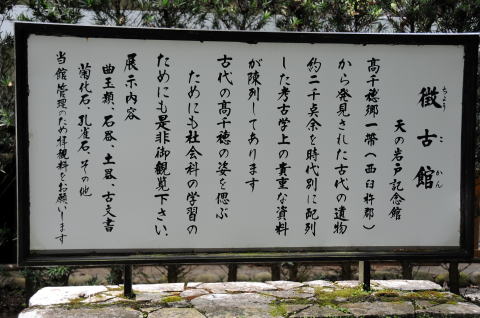 徴古館
ちょうこかん
天の岩戸記念館
高千穂郷一帯(西臼杵郡)
から発見された古代の遺物
約二千点余を時代別に配列
した考古学上の貴重な資料
が陳列してあります
古代の高千穂の姿を偲ぶ
ためにも社会科の学習の
ためにも是非御観覧下さい.
展示内容
曲玉類、石器、土器、古文書
菊花石、孔雀石、その他
当館管理のため拝観料をお願いします